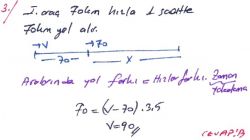 3. I. araç 70km hızla 1 saatte
70km yol alır.
→V →70
70 x
Arabrında yol farkı = Hızlar farkı. Zaman
70 = (V-70).3,5
V=90//